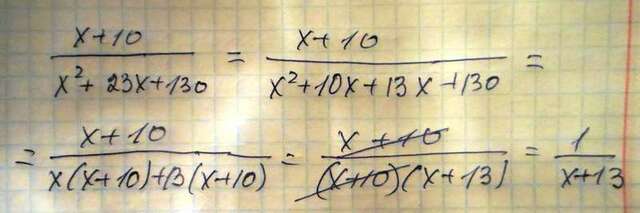 (x+10)/(x²+23x+130) = (x+10)/(x²+10x+13x+130) =
= (x+10)/(x(x+10)+13(x+10)) = (x+10)/((x+10)(x+13)) = 1/(x+13)